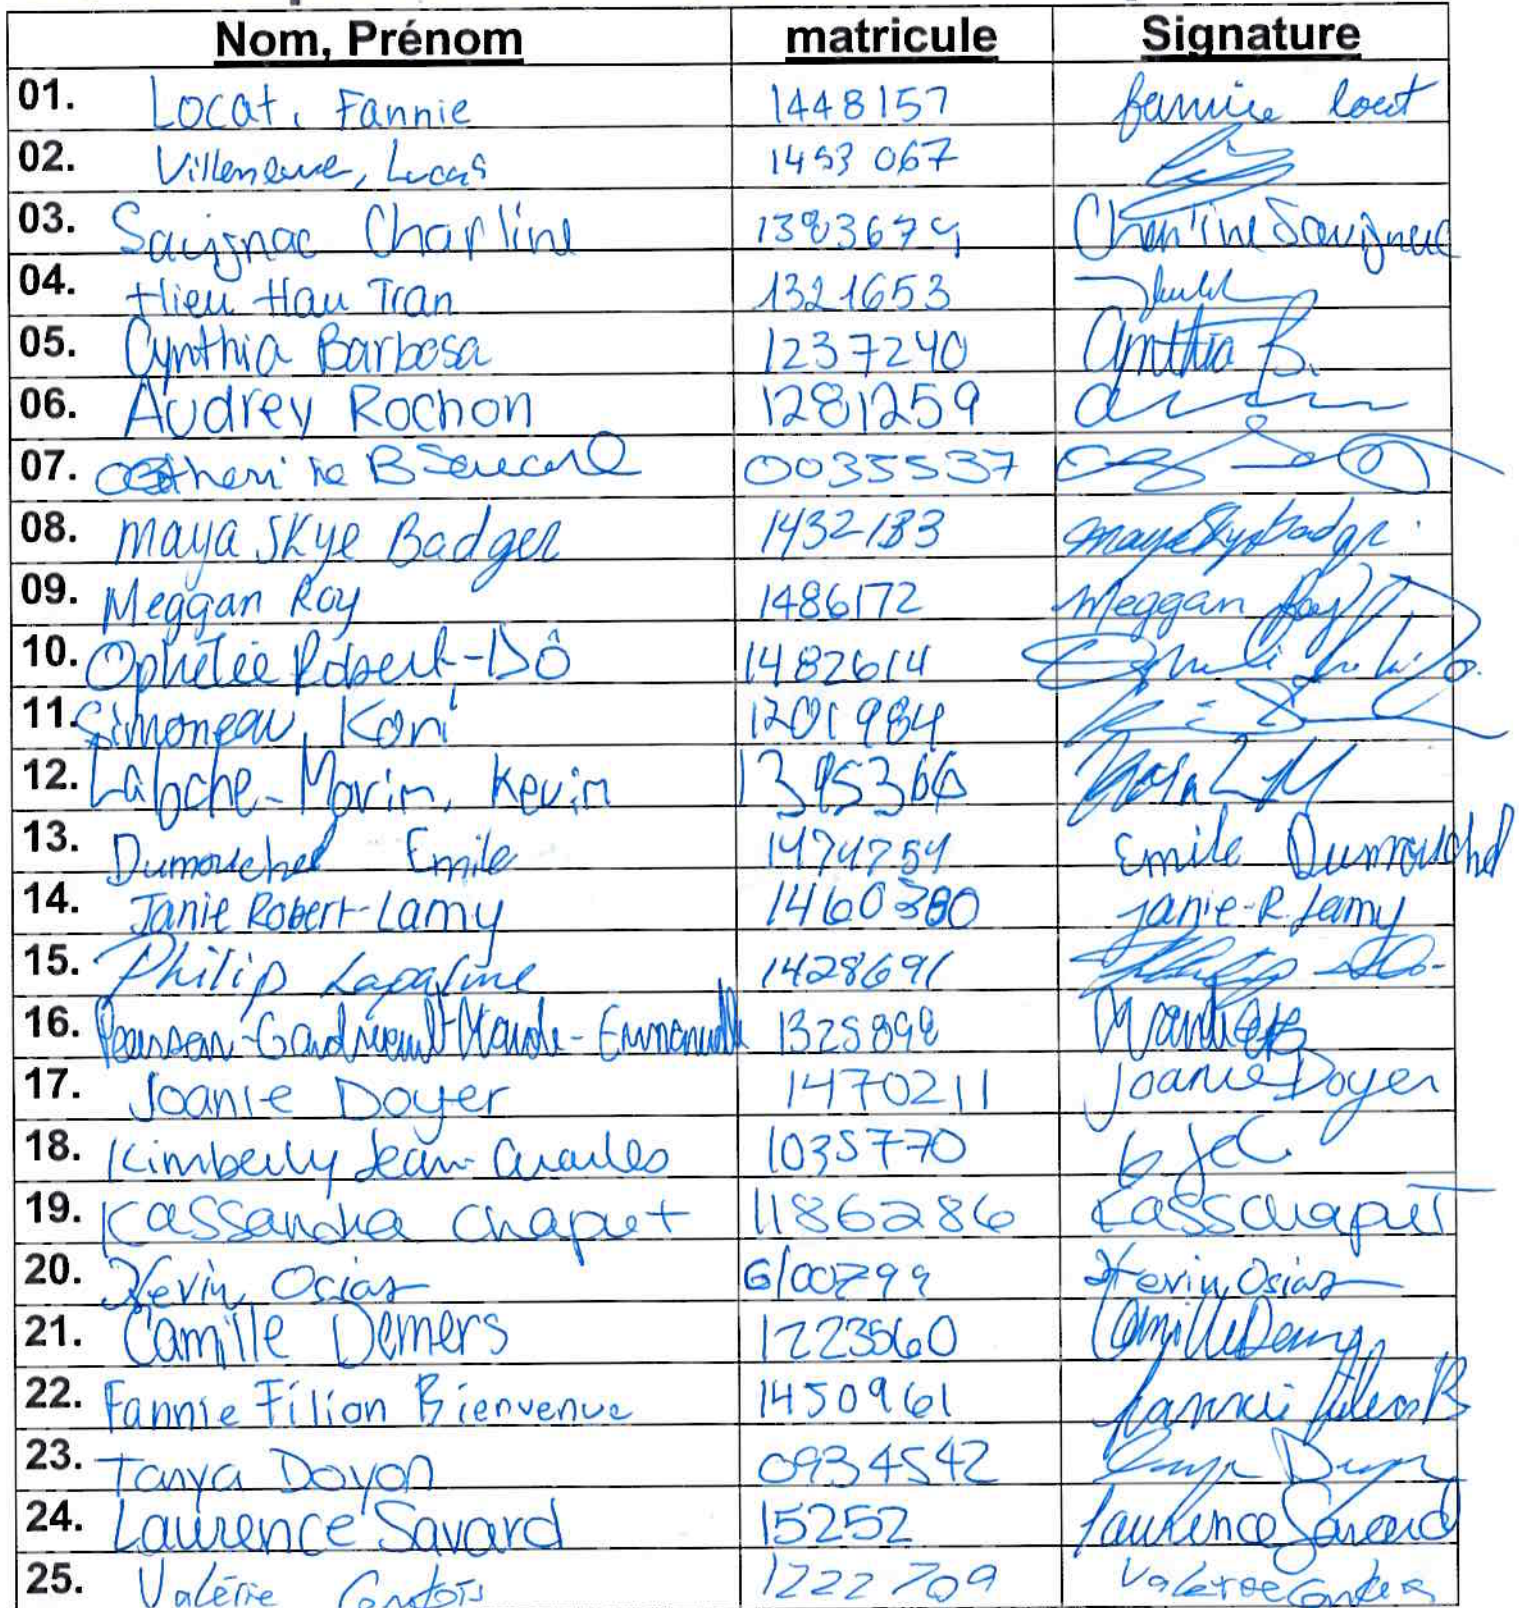 Nom, Prénom matricule Signature
01. Locat, Fannie 1448157
02. Villeneuve, Lucas 1453 067
03. Savignac Charline 1383679 Charline Savignac
04. Hieu Hau Tran 1321653
05. Cynthia Barbosa 1237240 Cynthia B.
06. Audrey Rochon 1281259
07. Catherine B 0035537
08. Maya Skye Badger 1432133 Maya Skye Badger
09. Meggan Roy 1486172 Meggan Roy
10. Ophélie Robert-Dô 1482614
11. Simoneau, Kori 1201984
12. Laroche-Morin, Kevin
13. Dumouchel Emile 1474754 Emile Dumouchel
14. Janie Robert-Lamy 1460380 Janie-R. Lamy
15. Philip 1428691
16. Maude-Emmanuelle 1325898
17. Joanie Doyer 1470211 Joanie Doyer
18. Kimberly Jean-Charles 1035770
19. Kassandra Chaput 1186286 Kass Chaput
20. Kevin Osias Kevin Osias
21. Camille Demers 1223560 Camille Demers
22. Fannie Filion Bienvenue 1450961 Fannie Filion B
23. Tanya Doyon 0934542
24. Laurence Savard 15252 Laurence Savard
25. Valérie Gentois 1222709